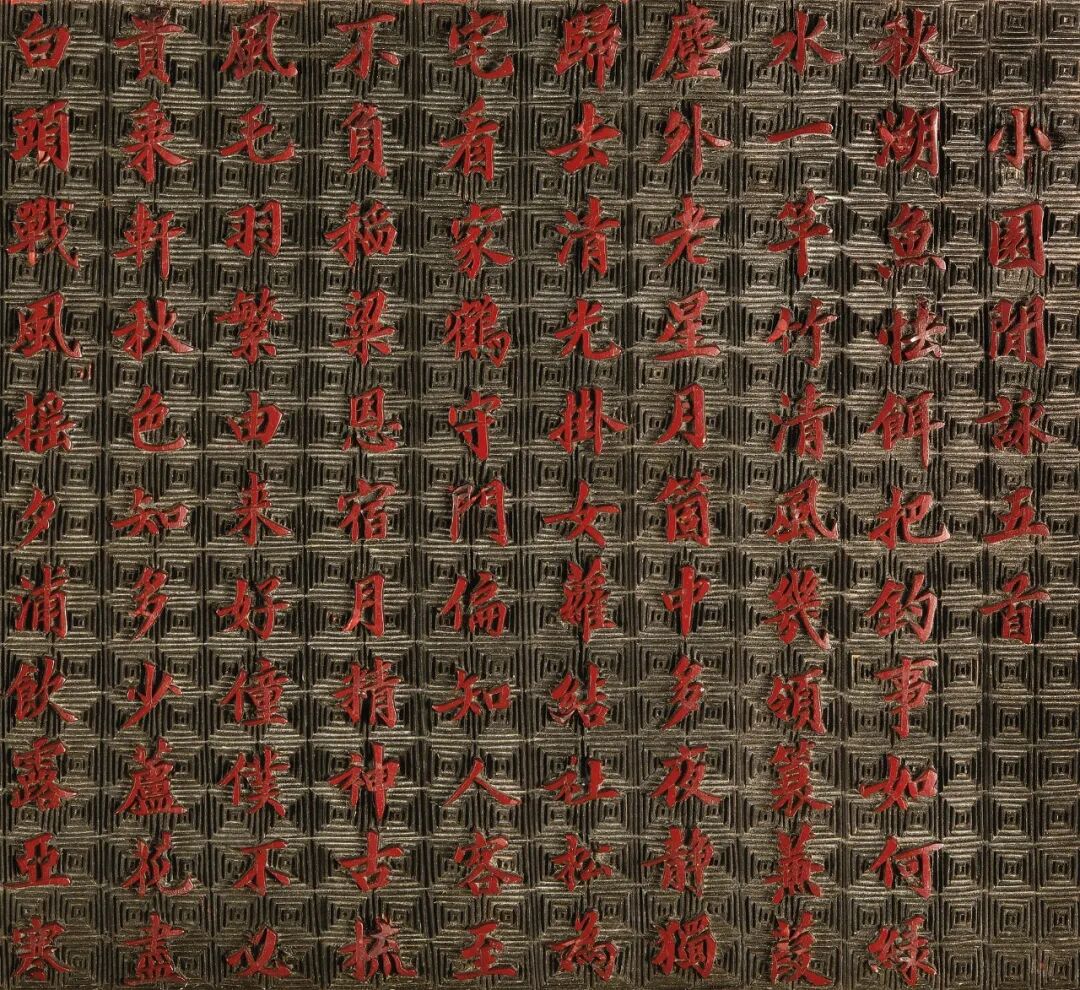 小園閒詠五首
秋湖魚怯餌把釣事如何緑
水一竿竹清風幾領蓑蒹葭
塵外老星月箇中多夜静獨
歸去清光掛女蘿結社松為
宅看家鶴守門偏知人客至
不負稻粱恩宿月精神古梳
風毛羽繁由来好僮僕不必
貴乗軒秋色知多少蘆花盡
白頭戰風摇夕浦飲露亞寒